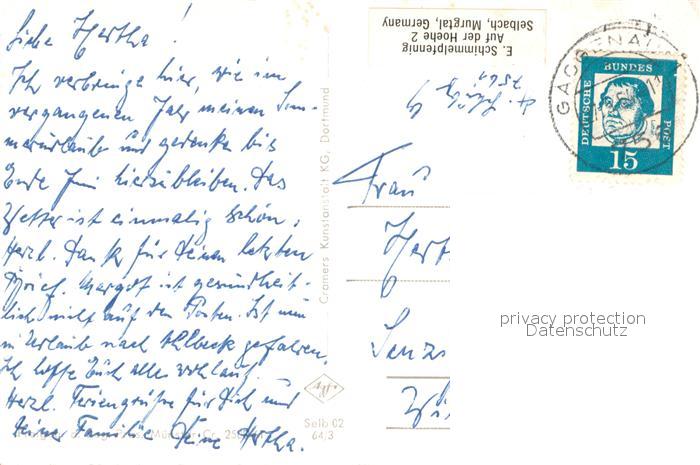 Liebe Hertha!
Ich verbringe hier, wie im
vergangenen Jahr meinen Som-
merurlaub und gedenke bis
Ende Juni hierzubleiben. Das
Wetter ist einmalig schön,
Herzl. Dank für Deinen letzten
Brief. Margot ist gesundheit-
lich nicht auf den Posten. Ist nun
in Urlaub nach Ahlbeck gefahren.
Ich hoffe Euch alles wohlauf.
Herzl. Feriengrüße für Dich und
Deine Familie Deine Hertha.
E. Schimmelpfennig
Auf der Hoehe 2
Selbach, Murgtal, Germany
Cramers Kunstanstalt KG, Dortmund
Agfa
Selb 02
64/3
GAGGENAU
DEUTSCHE BUNDESPOST
15
Frau
Hert
privacy protection
Datenschutz